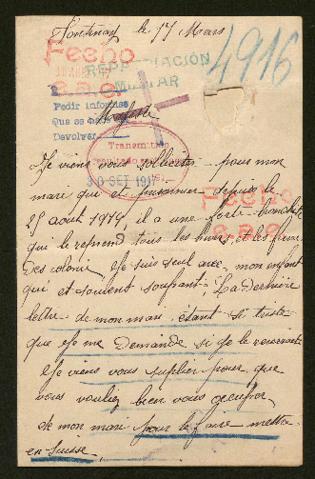 Fontenay le 17 Mars
4916
Fecho
REPATRIACIÓN
MILITAR
Pedir informes
Que se
Devolver
Majesté
Transmitir
30 SET 1917
Je viens vous solliciter pour mon
mari qui est prisonnier depuis le
25 août 1914, il a une forte bronchite
qui le reprend tous les hivers, et les fièvre
Des colonie Je suis seul avec mon enfant
qui et souvent soufrant; La Dernière
lettre de mon mari étant si triste
que je me Demande si je le reverrai
Je viens vous suplier pour que
vous vouliez bien vous occuper
de mon mari pour le faire mettre
en suisse.